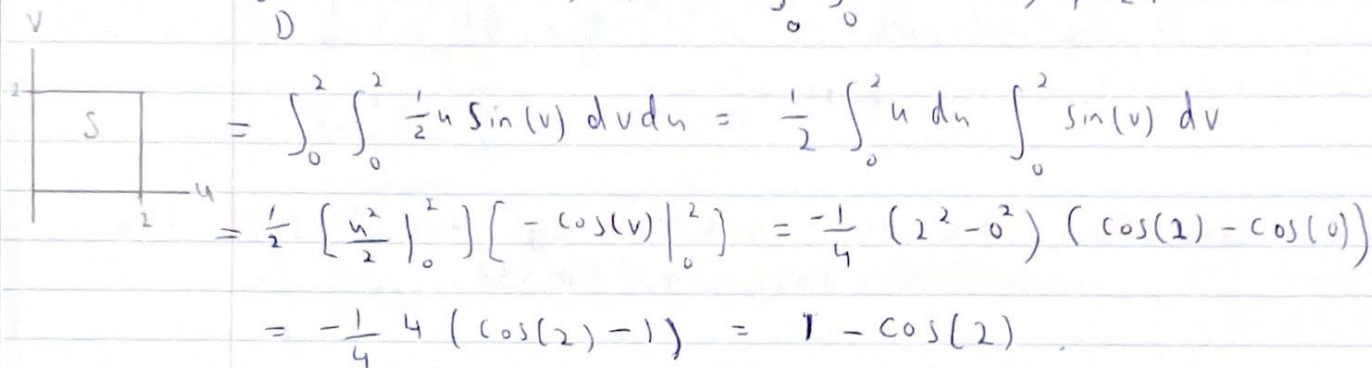 V D 0 0
2 S = ∫₀² ∫₀² ½ u sin(v) dvdu = ½ ∫₀² u du ∫₀² sin(v) dv
u
2 = ½ [u²/2 |₀²] [-cos(v) |₀²] = -¼ (2² - 0²) (cos(2) - cos(0))
= -¼ 4 (cos(2) - 1) = 1 - cos(2).